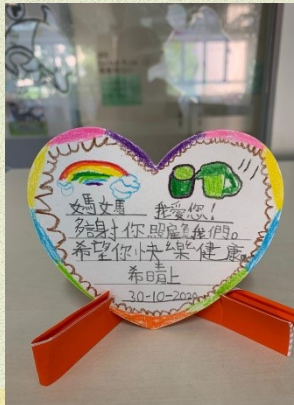 媽媽 我愛您!
多謝你照顧我們。
希望你快樂健康。
希晴上
30-10-2020